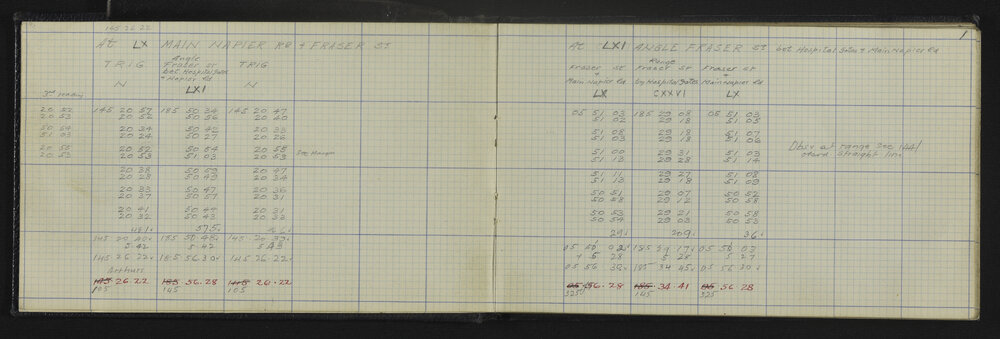 145 26 22
At LX MAIN NAPIER RD & FRASER ST
TRIG Angle TRIG
Fraser St
bet Hospital Gates
& Napier Rd
N LXI N
3rd reading
20 52 145 20 57 185 50 34 145 20 47
20 53 20 52 50 56 20 40
50 54 20 34 50 42 20 33
51 03 20 24 50 27 20 26
20 55 20 52 50 54 20 55
20 53 20 53 51 03 20 53
20 38 50 59 20 47
20 28 50 49 20 34
20 33 50 47 20 36
20 37 50 57 20 31
20 41 50 44 20 31
20 32 50 43 20 33
575
145 20 40 185 50 48 145 20 39
5 42 5 42 5 43
145 26 22 185 56 30 145 26 22
Arthurs
145 26 22 185 56 28 145 26 22
105 145 105
1
At LXI ANGLE FRASER St bet Hospital Gates & Main Napier Rd
Fraser St Range Fraser St
& Fraser St &
Main Napier Rd by Hospital Gates Main Napier Rd
LX CXXVI LX
05 51 03 185 29 08 05 51 03
51 02 29 18 51 05
51 08 29 18 51 07
51 03 29 18 51 06
51 00 29 31 51 03
51 13 29 28 51 14
Obsv at range see 144/
straight line
51 11 29 27 51 08
51 13 29 18 51 09
50 51 29 07 50 52
50 58 29 12 50 58
50 53 29 21 50 58
50 54 29 03 50 53
29 209 36
5 28 5 28 5 27
05 56 185 34 45 05 56 30
05 56 28 185 34 41 05 56 28
325 145 325